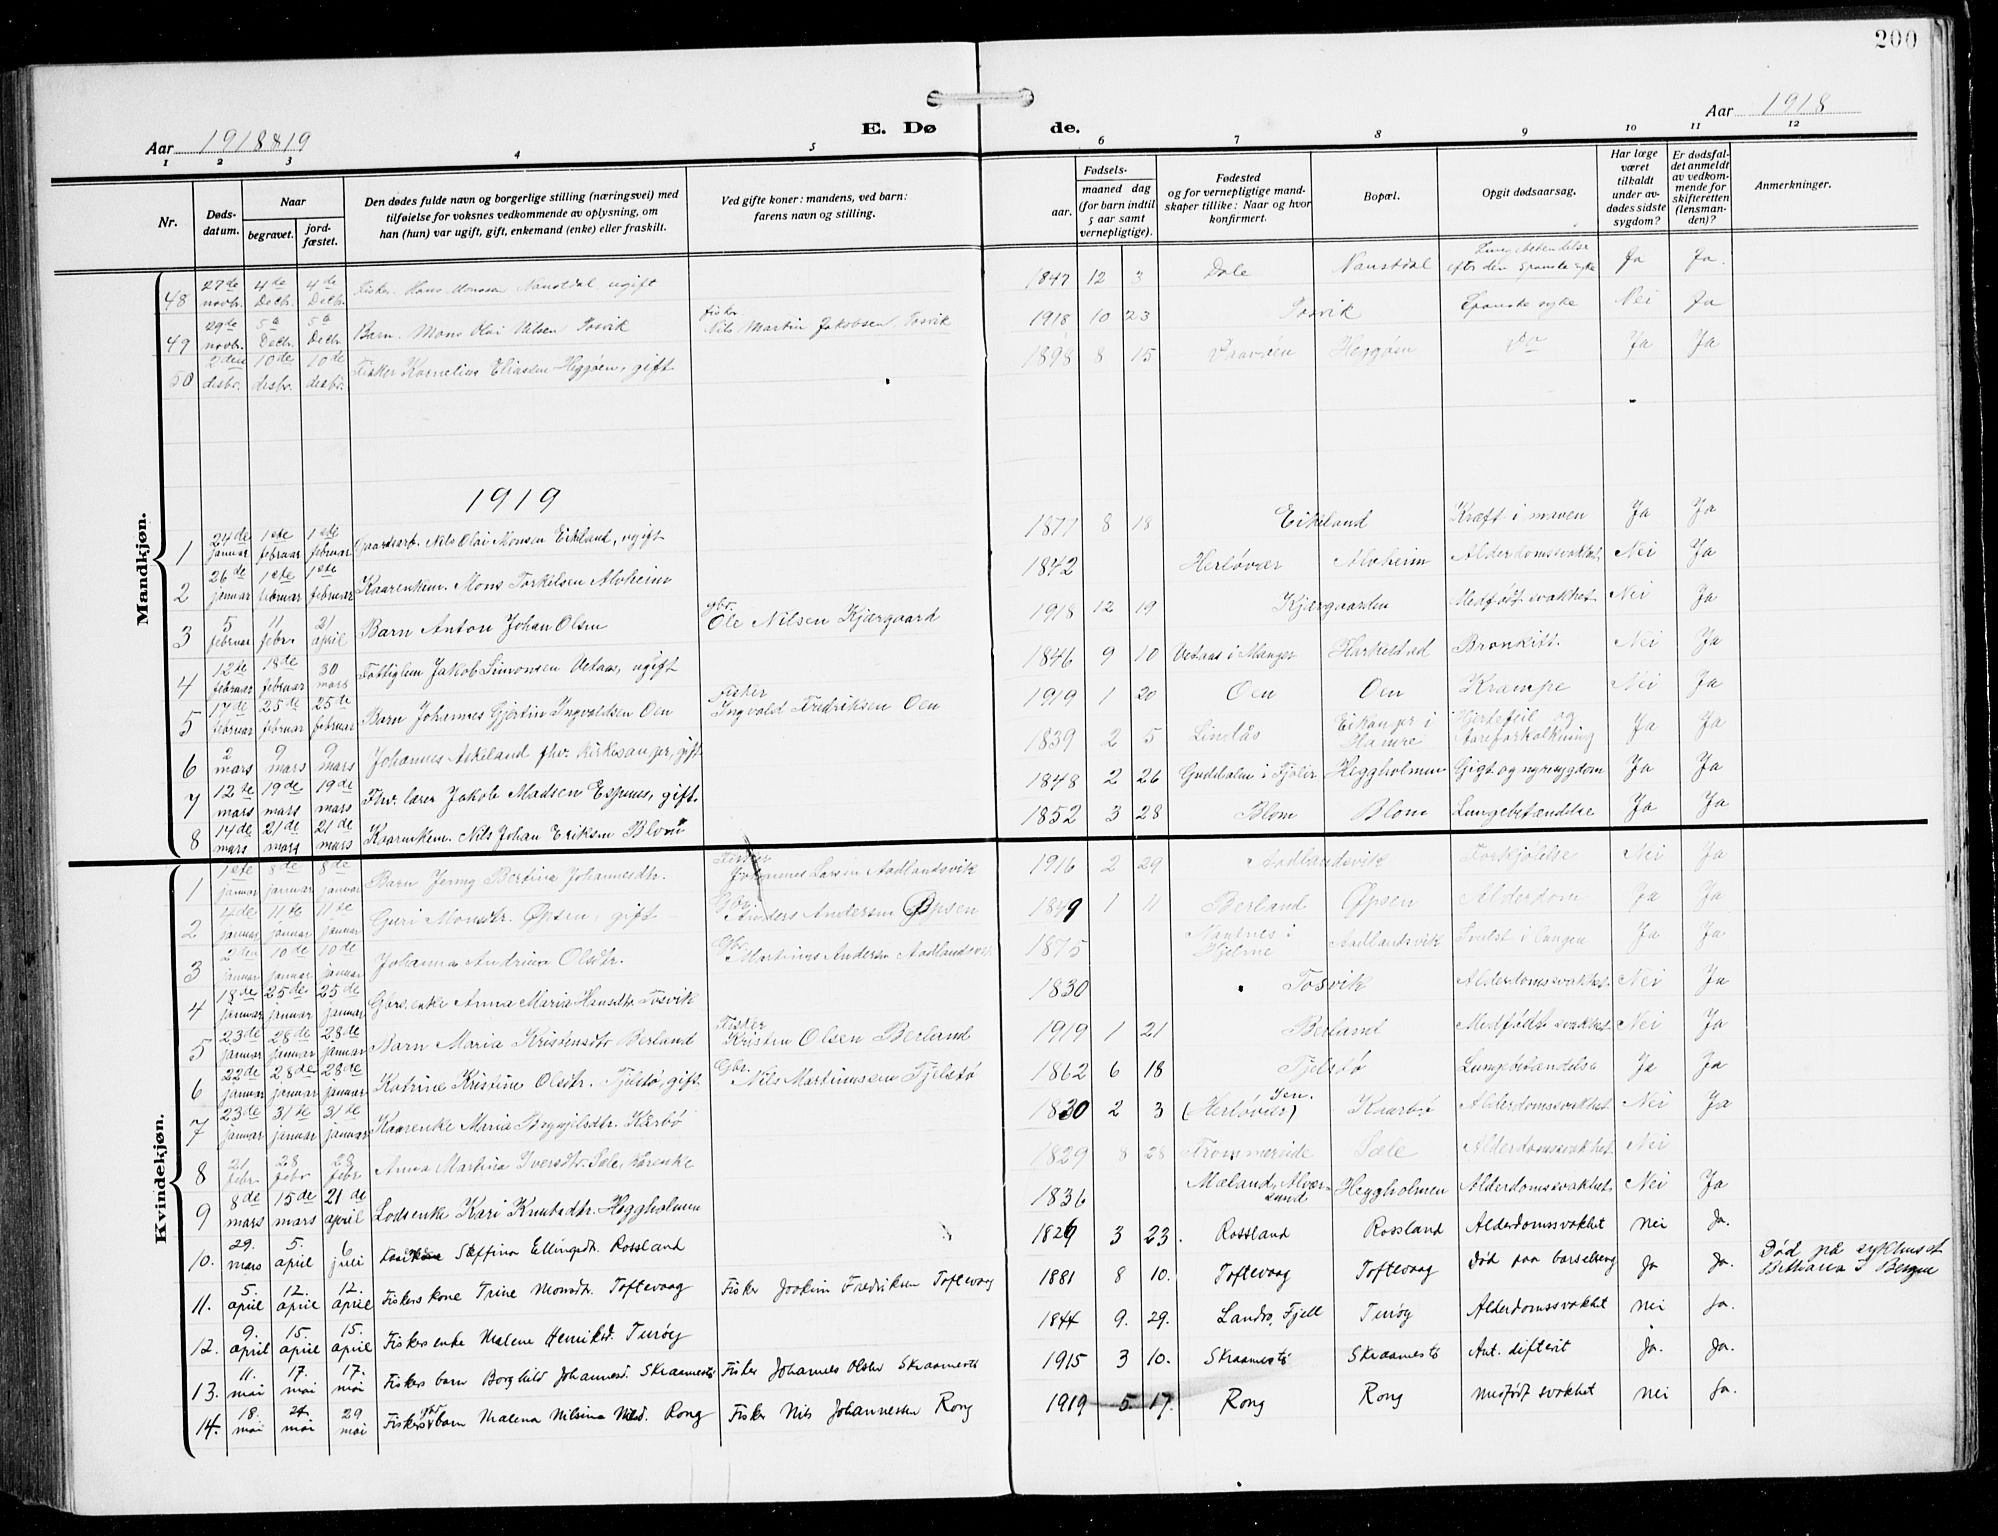 200
Aar 1918 & 19
E. Dø
de.
Aar 1918
1 2 3 4 5 6 7 8 9 10 11 12
Nr.
Døds-
datum.
Naar
begravet.
jord-
fæstet.
Den dødes fulde navn og borgerlige stilling (næringsvei) med
tilføielse for voksnes vedkommende av oplysning, om
han (hun) var ugift, gift, enkemand (enke) eller fraskilt.
Ved gifte koner: mandens, ved barn:
farens navn og stilling.
Fødsels-
aar.
maaned dag
(for barn indtil
5 aar samt
vernepligtige).
Fødested
og for vernepligtige mand-
skaper tillike: Naar og hvor
konfirmert.
Bopæl.
Opgit dødsaarsag.
Har læge
været
tilkaldt
under av-
dødes sidste
sygdom?
Er dødsfal-
det anmeldt
av vedkom-
mende for
skifteretten
(lensman-
den)?
Anmerkninger.
Mandkjøn.
48 27de novbr. 4de Decbr. 4de Decbr. Fisker Hans Monssen Naustdal ugift 1847 12 3 Dale Naustdal Lungebetendelse efter den Spanske syke Ja Ja.
49 29de novbr. 5te Decbr. 5te Decbr. Barn. Mons Olai Nilsen Tosvik Fisker Nils Martin Jakobsen Tosvik 1918 10 23 Tosvik Spanske syke Nei Ja
50 2den desbr. 10de desbr. 10de desbr. Fisker Kornelius Eliassen Heggøen, gift 1898 8 15 Heggøen Ja Ja
1919
1 24de januar 1ste februar 1ste februar Gaardarb. Nils Olai Monsen Eikeland, ugift 1877 8 18 Eikeland Kræft i maven Ja Ja
2 26de januar 1ste februar 1ste februar Kaarenkem. Mons Torkilsen Alvheim 1842 Herløvær Alvheim Alderdomssvakhet Nei Ja
3 5 februar 11 febr. 21 april Barn Anton Johan Olsen gbr. Ole Nilsen Kjærgaard 1918 12 19 Kjærgaarden Medfødt svakhet Nei Ja
4 12te februar 18de februar 30 mars Fattiglem Jakob Simonsen Vetaas, ugift 1846 9 10 Vetaas i Manger Hirkestad Bronkitt. Nei Ja
5 17de februar 25de februar 25de februar Barn Johannes Gjertin Ingvaldsen Oen Fisker Ingvald Fredriksen Oen 1919 1 20 Oen Oen Krampe Nei Ja
6 2 mars 9 mars 9 mars Johannes Askeland fhv. kirkesanger, gift 1839 2 5 Lindås Eikanger i Hamre Hjertefeil og Aareforkalkning Ja Ja
7 12te mars 19de mars 19de mars Fhv. lærer Jakob Madsen Espenes, gift. 1848 2 26 Guddalen i Fjaler Heggholmen Gigt og nyresygdom Ja Ja
8 14de mars 21de mars 21de mars Kaarenkem. Nils Johan Eriksen Blom 1852 3 28 Blom Blom Lungebetændelse Ja Ja
Kvindekjøn.
1 1ste januar 8de januar 8de januar Barn Jenny Bertina Johannesdtr. Fisker Johannes Larsen Aadlandsvik 1916 2 29 Aadlandsvik Forkjølelse Nei Ja
2 4de januar 11te januar 11te januar Guri Monsdtr. Øpsen, gift Gbr. Anders Andersen Øpsen 1849 1 11 Berland Øpsen Alderdom Ja Ja
3 2den januar 10de januar 10de januar Johanna Andrina Olsdtr. Gbr. Martinus Andersen Aadlandsvik 1875 Nautnes i Hjelme Aadlandsvik Svulst i Lungen Ja Ja
4 18de januar 25de januar 25de januar Gbrs. enke Anna Maria Hansdtr. Tosvik 1830 Tosvik Alderdomssvakhet. Nei Ja
5 23de januar 28de januar 28de januar Barn Maria Kristensdtr Berland Fisker Kristen Olsen Berland 1919 1 21 Berland Medfødt svakhet Nei Ja
6 22de januar 28de januar 28de januar Katrine Kristine Olsdtr. Fjelstø, gift. Gbr. Nils Martinussen Fjelstø 1862 6 18 Fjelstø Lungebetændelse Ja Ja
7 23de januar 31te januar 31te januar Kaarenke Maria Brynjelsdtr. Kårbø 1830 2 3 (Herløvær) Kaarbø Alderdomssvakhet. Nei Ja
8 21 febr. 28 febr 28 febr Anna Martina Iversdtr. Sæle, kårenke 1829 8 28 Frommereide Sæle Alderdomssvakhet. Nei
9 8de mars 15de mars 21de april Lodsenke Kari Knutsdtr. Heggholmen 1836 Mæland, Alversund Heggholmen Alderdomssvakhet. Nei Ja
10. 29. mars 5. april 6 juli Steffina Ellingsdtr. Rossland 1826 3 23. Rossland Rossland Alderdomssvakhet nei Ja.
11. 5. april 12. april 12. april Fiskers kone Trine Monsdtr. Toftevaag Fisker Joakim Fredriksen Toftevaag 1881 8 10. Toftevaag Toftevaag Død paa barselseng Ja Ja. Død på sykehuset Bethania i Bergen
12. 9. april 15. april 15. april Fiskers enke Malene Henriksd. Turøy 1844 9. 29. Landro, Fjell Turøy Alderdomssvakhet nei Ja.
13. 11. mai 17. mai 17. mai Fiskers barn Borghild Johannesd. Skraamestø Fisker Johannes Olsen Skraamestø 1915 3 10. Skraamestø Skraamestø Ant. difterit Ja. Ja.
14. 18. mai 24 mai 29 mai Fiskers gbr barn Malena Nilsina Nilsd. Rong Fisker Nils Johannessen Rong 1919 5. 17. Rong Rong Medfødt svakhet nei Ja.